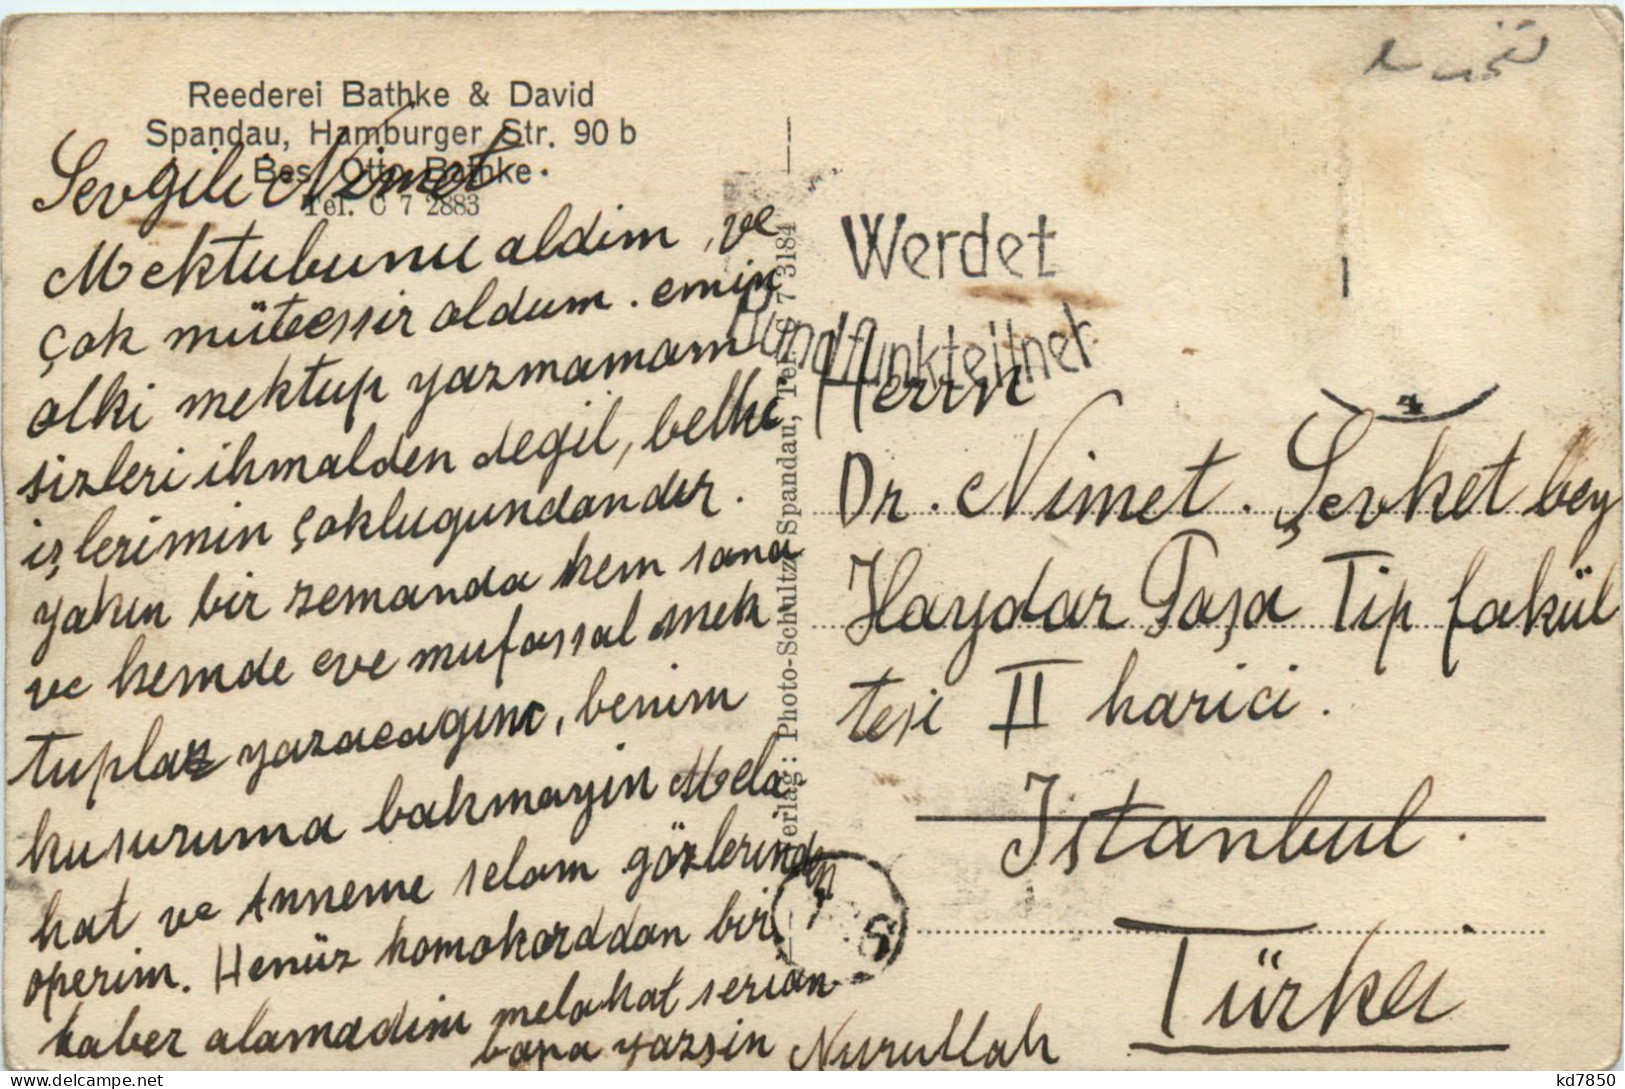 Reederei Bathke & David
Spandau, Hamburger Str. 90 b
Bes. Otto Bathke
Tel. C 7 2883
Sevgili Nimet
Mektubunu aldim, ve
çok müteessir oldum. emin
olki mektup yazmamam
sizleri ihmalden degil, belki
işlerimin çoklugundandır.
yakın bir zemanda hem sana
ve hemde eve mufassal mek
tuplar yazacagım, benim
kusuruma bakmayin Mela
hat ve Anneme selam gözlerinden
operim. Henüz homokorddan bir
haber alamadim melahat serian
bana yazsin Nurullah
Verlag: Photo-Schultz, Spandau, Tel. C 7 3184
Werdet
Rundfunkteilnehmer
Herrn
Dr. Nimet. Şevket bey
Haydar Paşa Tip fakül
tesi II harici.
Istanbul.
Türkei
kd7850